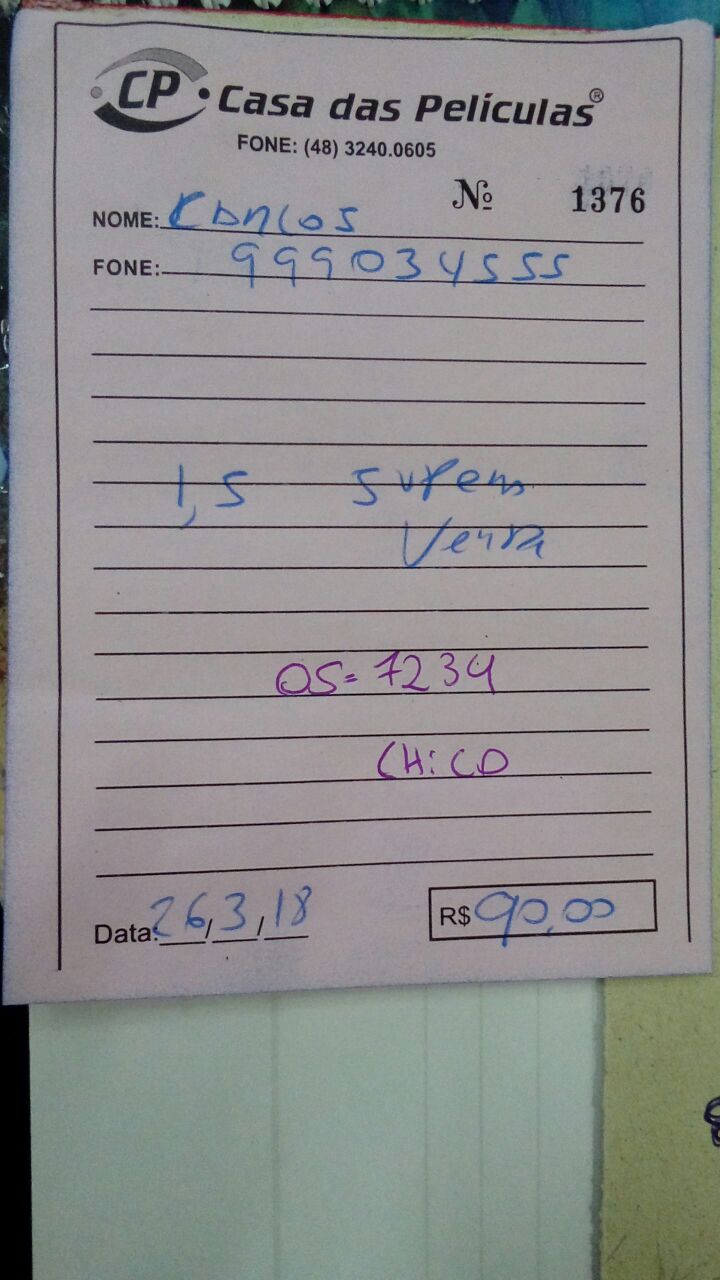 CP Casa das Películas®
FONE: (48) 3240.0605
Nº 1376
NOME: Carlos
FONE: 999034555
1,5 Super
Venda
OS= 7234
CHiCO
Data: 26/3/18 R$ 90,00